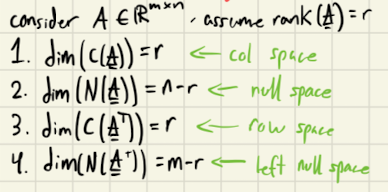 consider A ∈ ℝ^{m×n}, assume rank(A)=r
1. dim(C(A))=r ← col space
2. dim(N(A))=n-r ← null space
3. dim(C(A^T))=r ← row space
4. dim(N(A^T))=m-r ← left null space